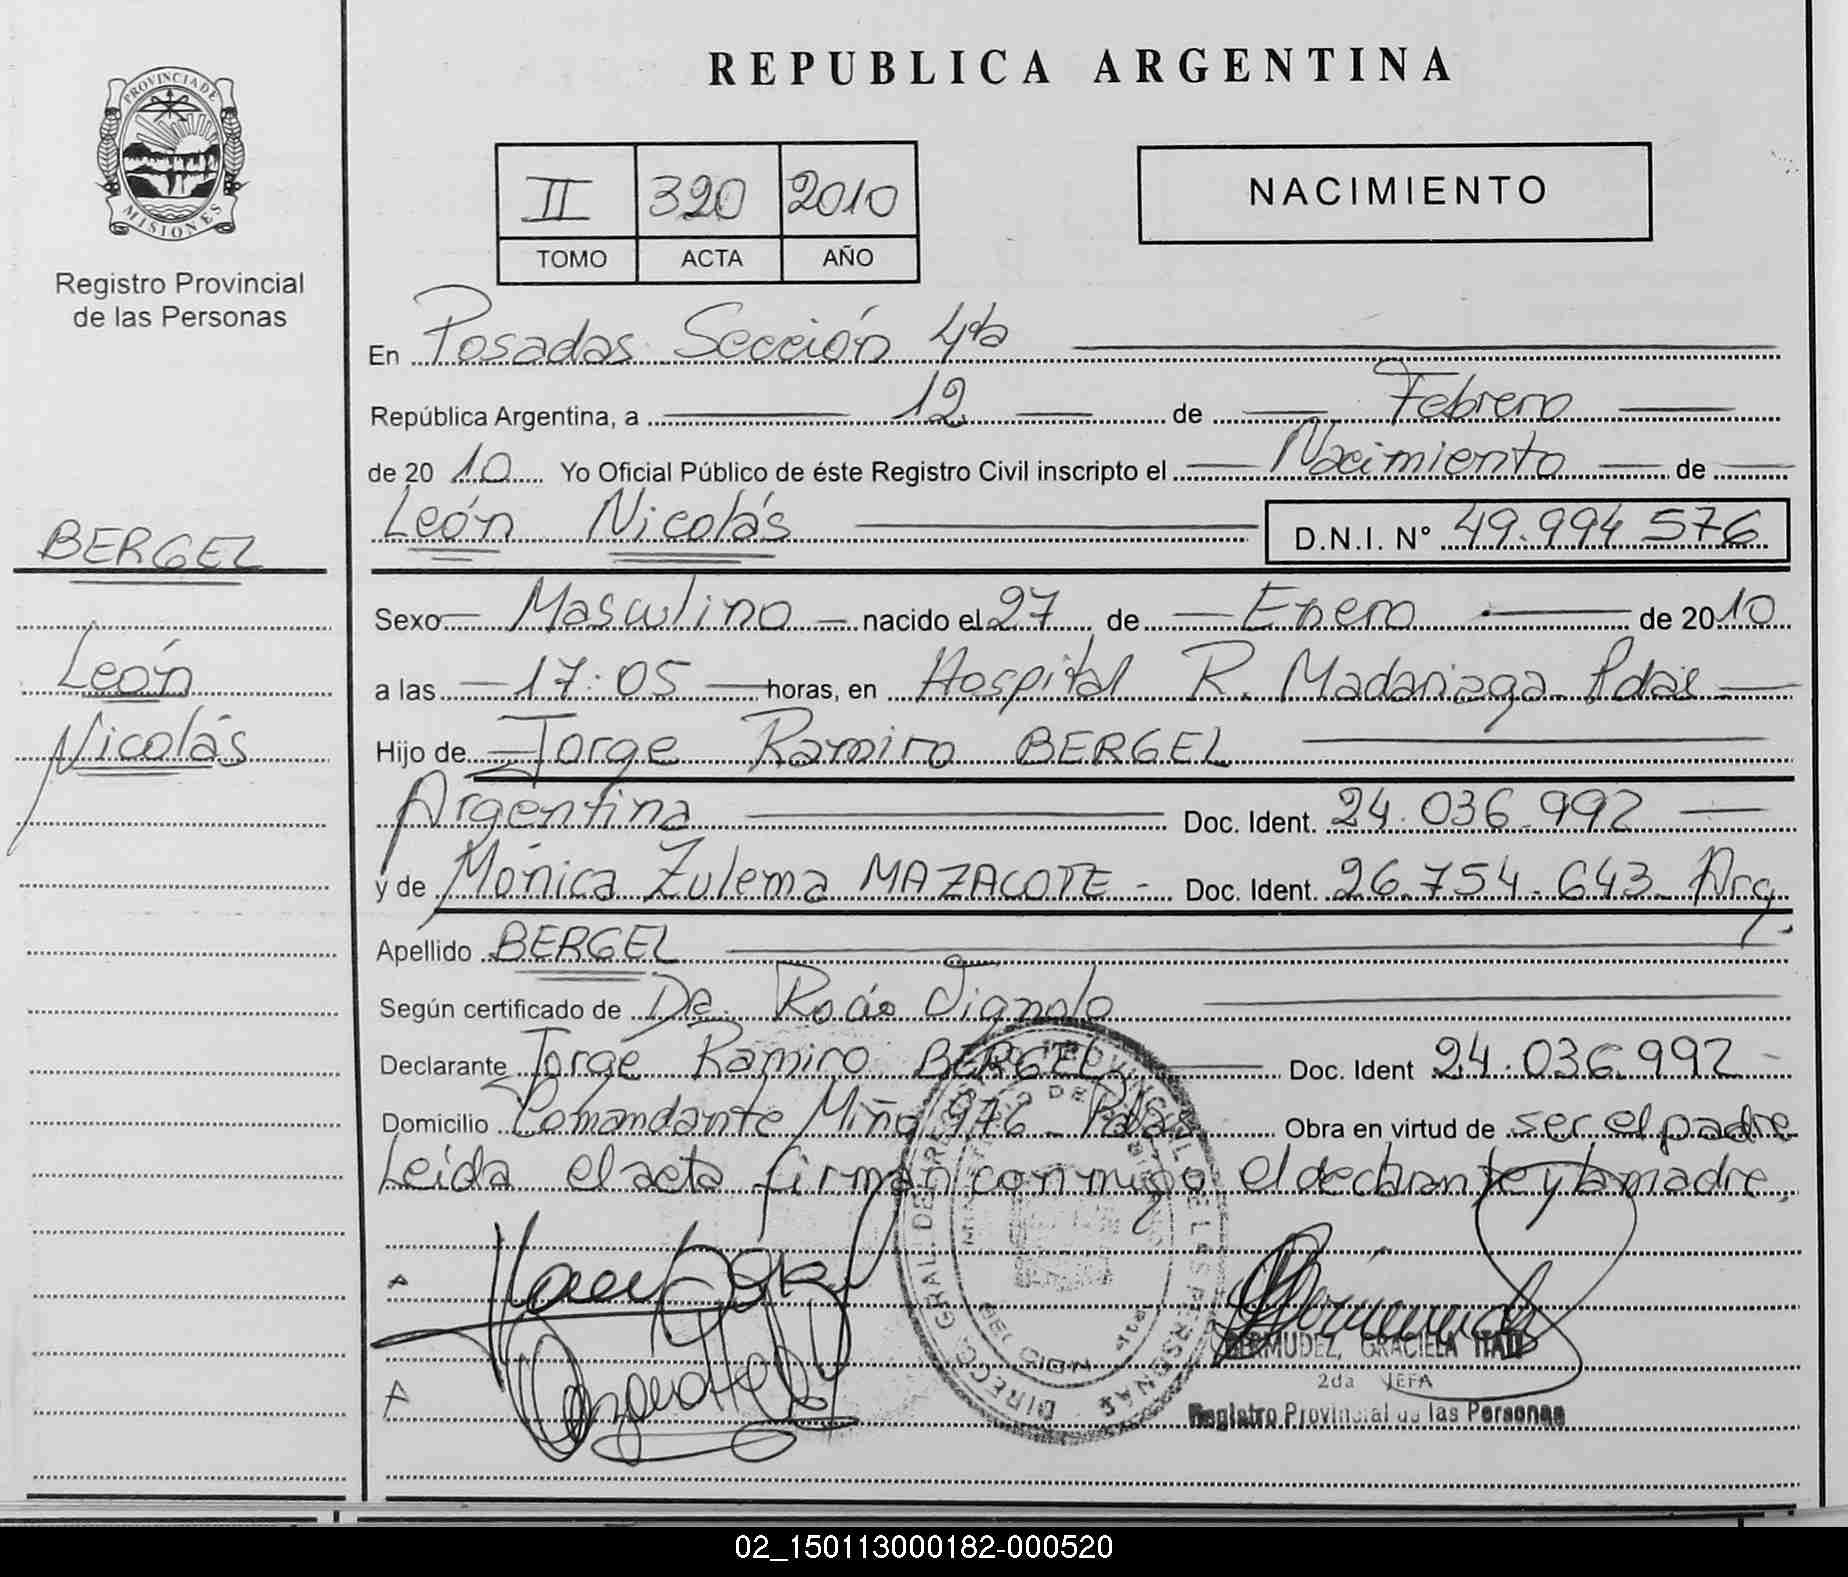 REPUBLICA ARGENTINA
PROVINCIA DE
MISIONES
Registro Provincial
de las Personas
BERGEL
León
Nicolás
II 320 2010
TOMO ACTA AÑO
NACIMIENTO
En Posadas Sección 4ta
República Argentina, a 12 de Febrero
de 20 10 Yo Oficial Público de éste Registro Civil inscripto el Nacimiento de
León Nicolás D.N.I. N° 49.994 576
Sexo Masculino nacido el 27 de Enero de 20 10
a las 17:05 horas, en Hospital R. Madariaga Pdas
Hijo de Jorge Ramiro BERGEL
Argentina Doc. Ident. 24.036.992
y de Mónica Zulema MAZACOTE - Doc. Ident. 26.754.643 Arg.
Apellido BERGEL
Según certificado de Dra. Rocío
Declarante Jorge Ramiro BERGEL Doc. Ident 24.036.992
Domicilio Comandante Miño 976 - Pdas Obra en virtud de ser el padre
Leida el acta firman conmigo el declarante y la madre.
DIRECC. GRAL. DEL REG. PROVINCIAL DE LAS PERSONAS
BERMUDEZ, GRACIELA ITATI
2da JEFA
Registro Provincial de las Personas
02_150113000182-000520